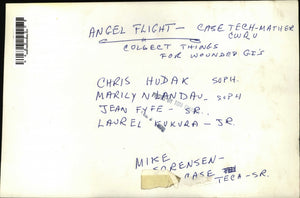 ANGEL FLIGHT - CASE TECH-MATHER
CWRU
COLLECT THINGS
FOR WOUNDED GI'S
CHRIS HUDAK SOPH.
MARILY NALANDAU - SOPH
JEAN FYFE - SR.
LAUREL KUKURA - JR.
MIKE
SORENSEN-
CASE TECH-SR.